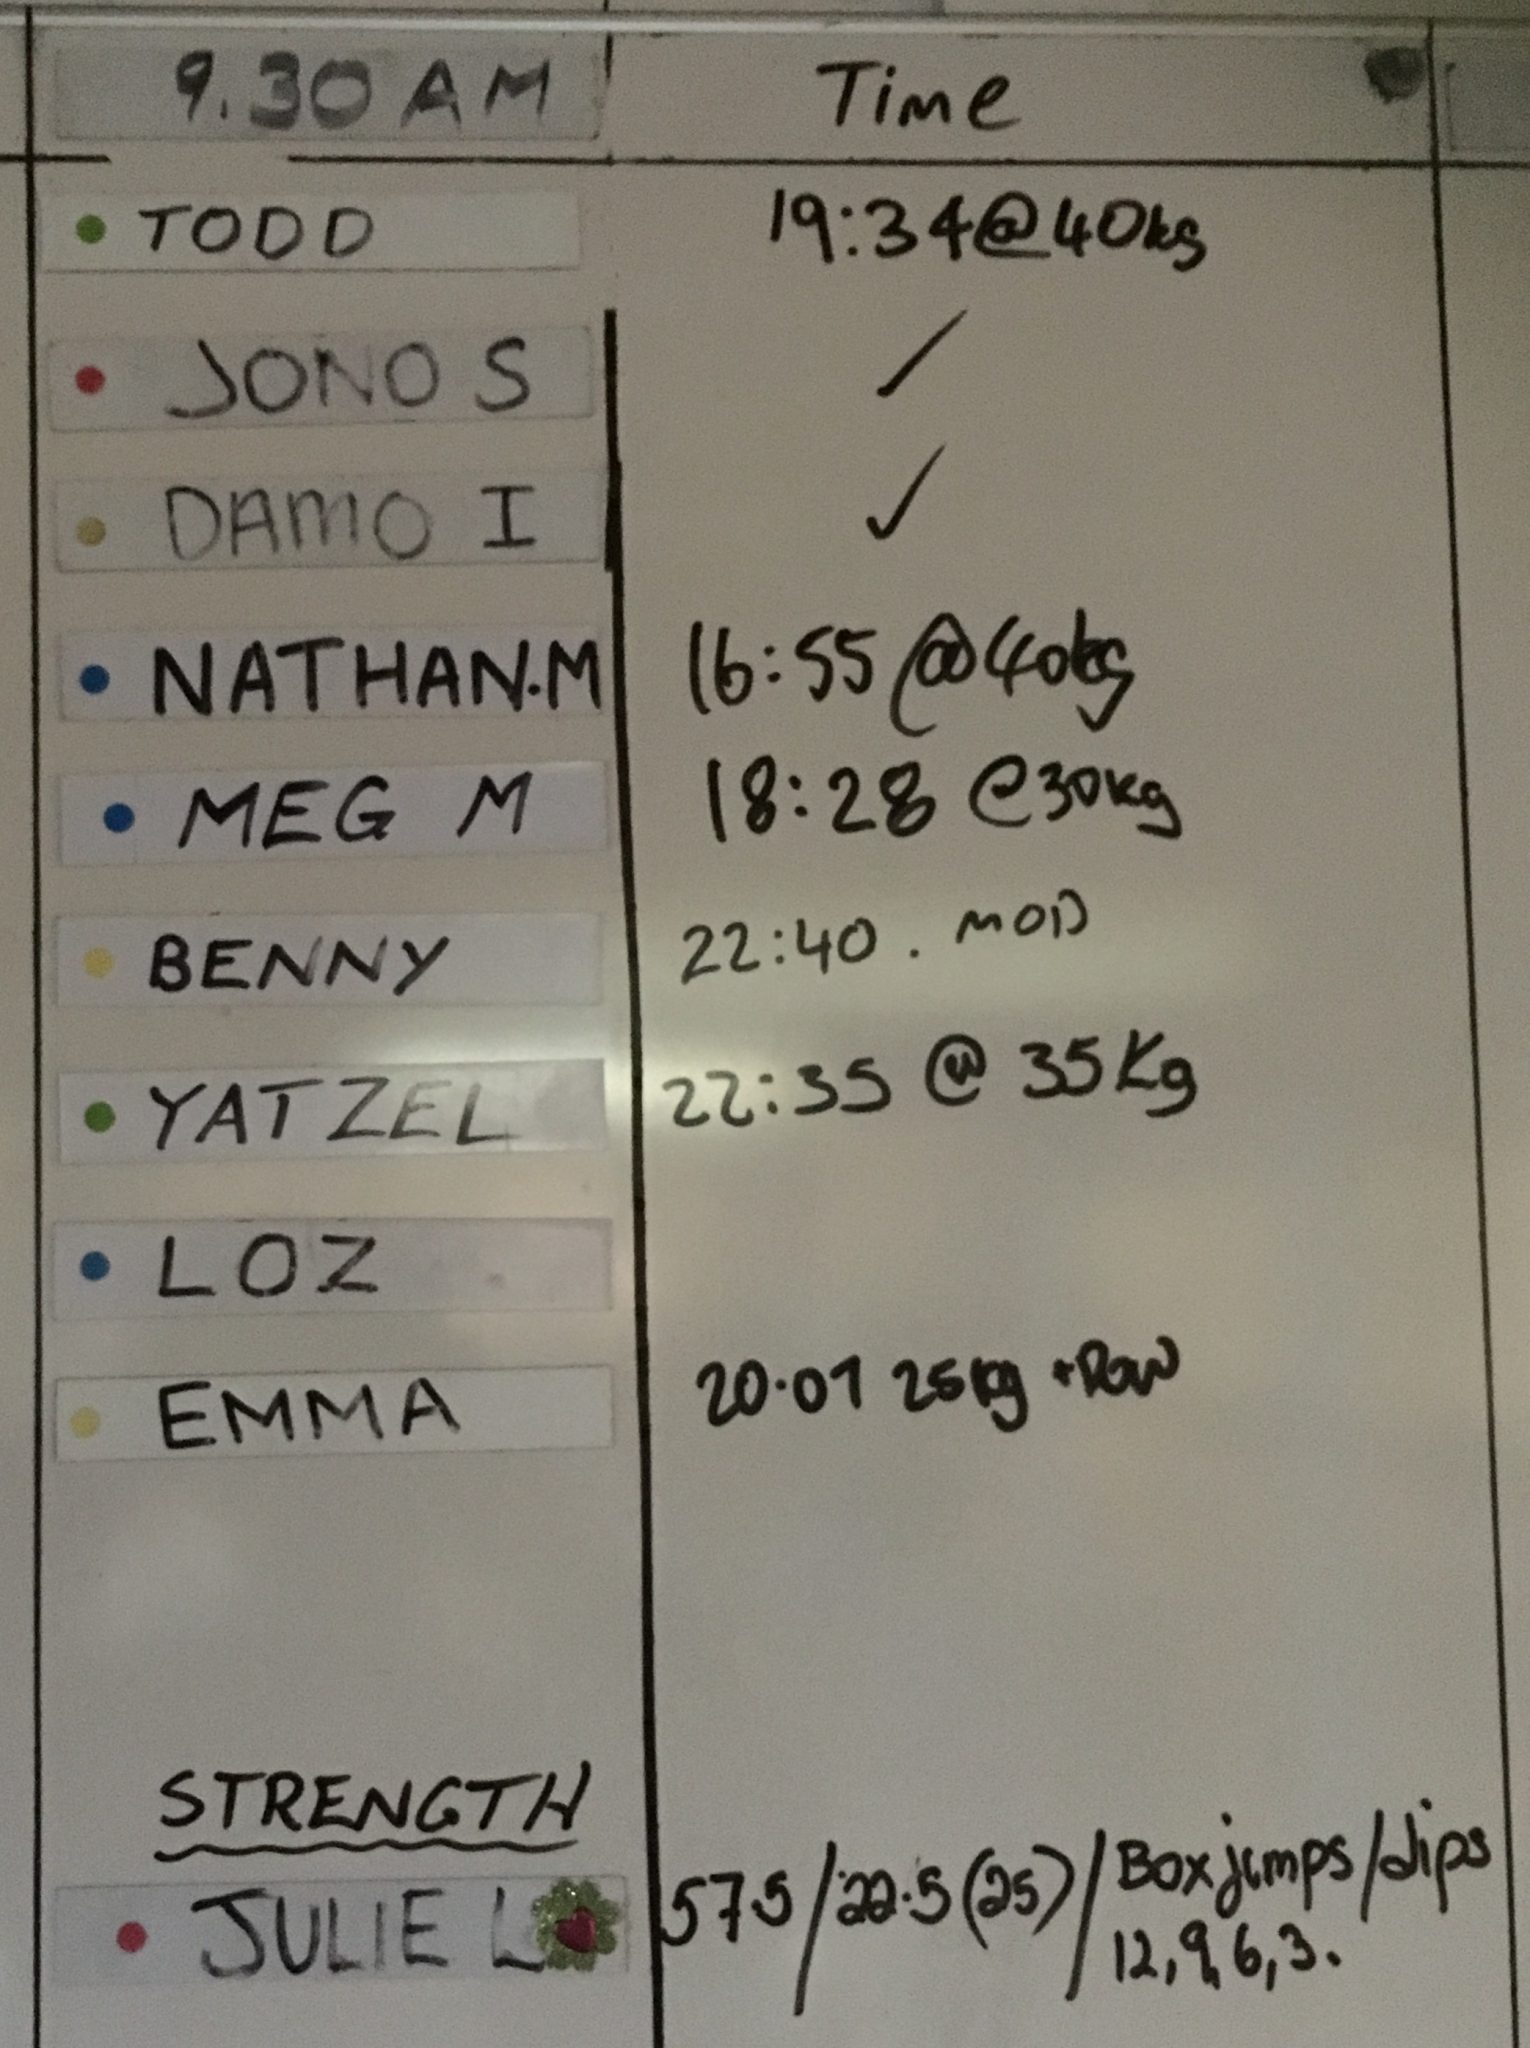 9.30 AM Time
TODD 19:34@40kg
JONO S
DAMO I
NATHAN.M 16:55@40kg
MEG M 18:28 @30kg
BENNY 22:40. MOD
YATZEL 22:35 @ 35Kg
LOZ
EMMA 20.01 25kg + Row
STRENGTH
JULIE L 57.5/22.5(25)/Box jumps/dips
12,9,6,3.